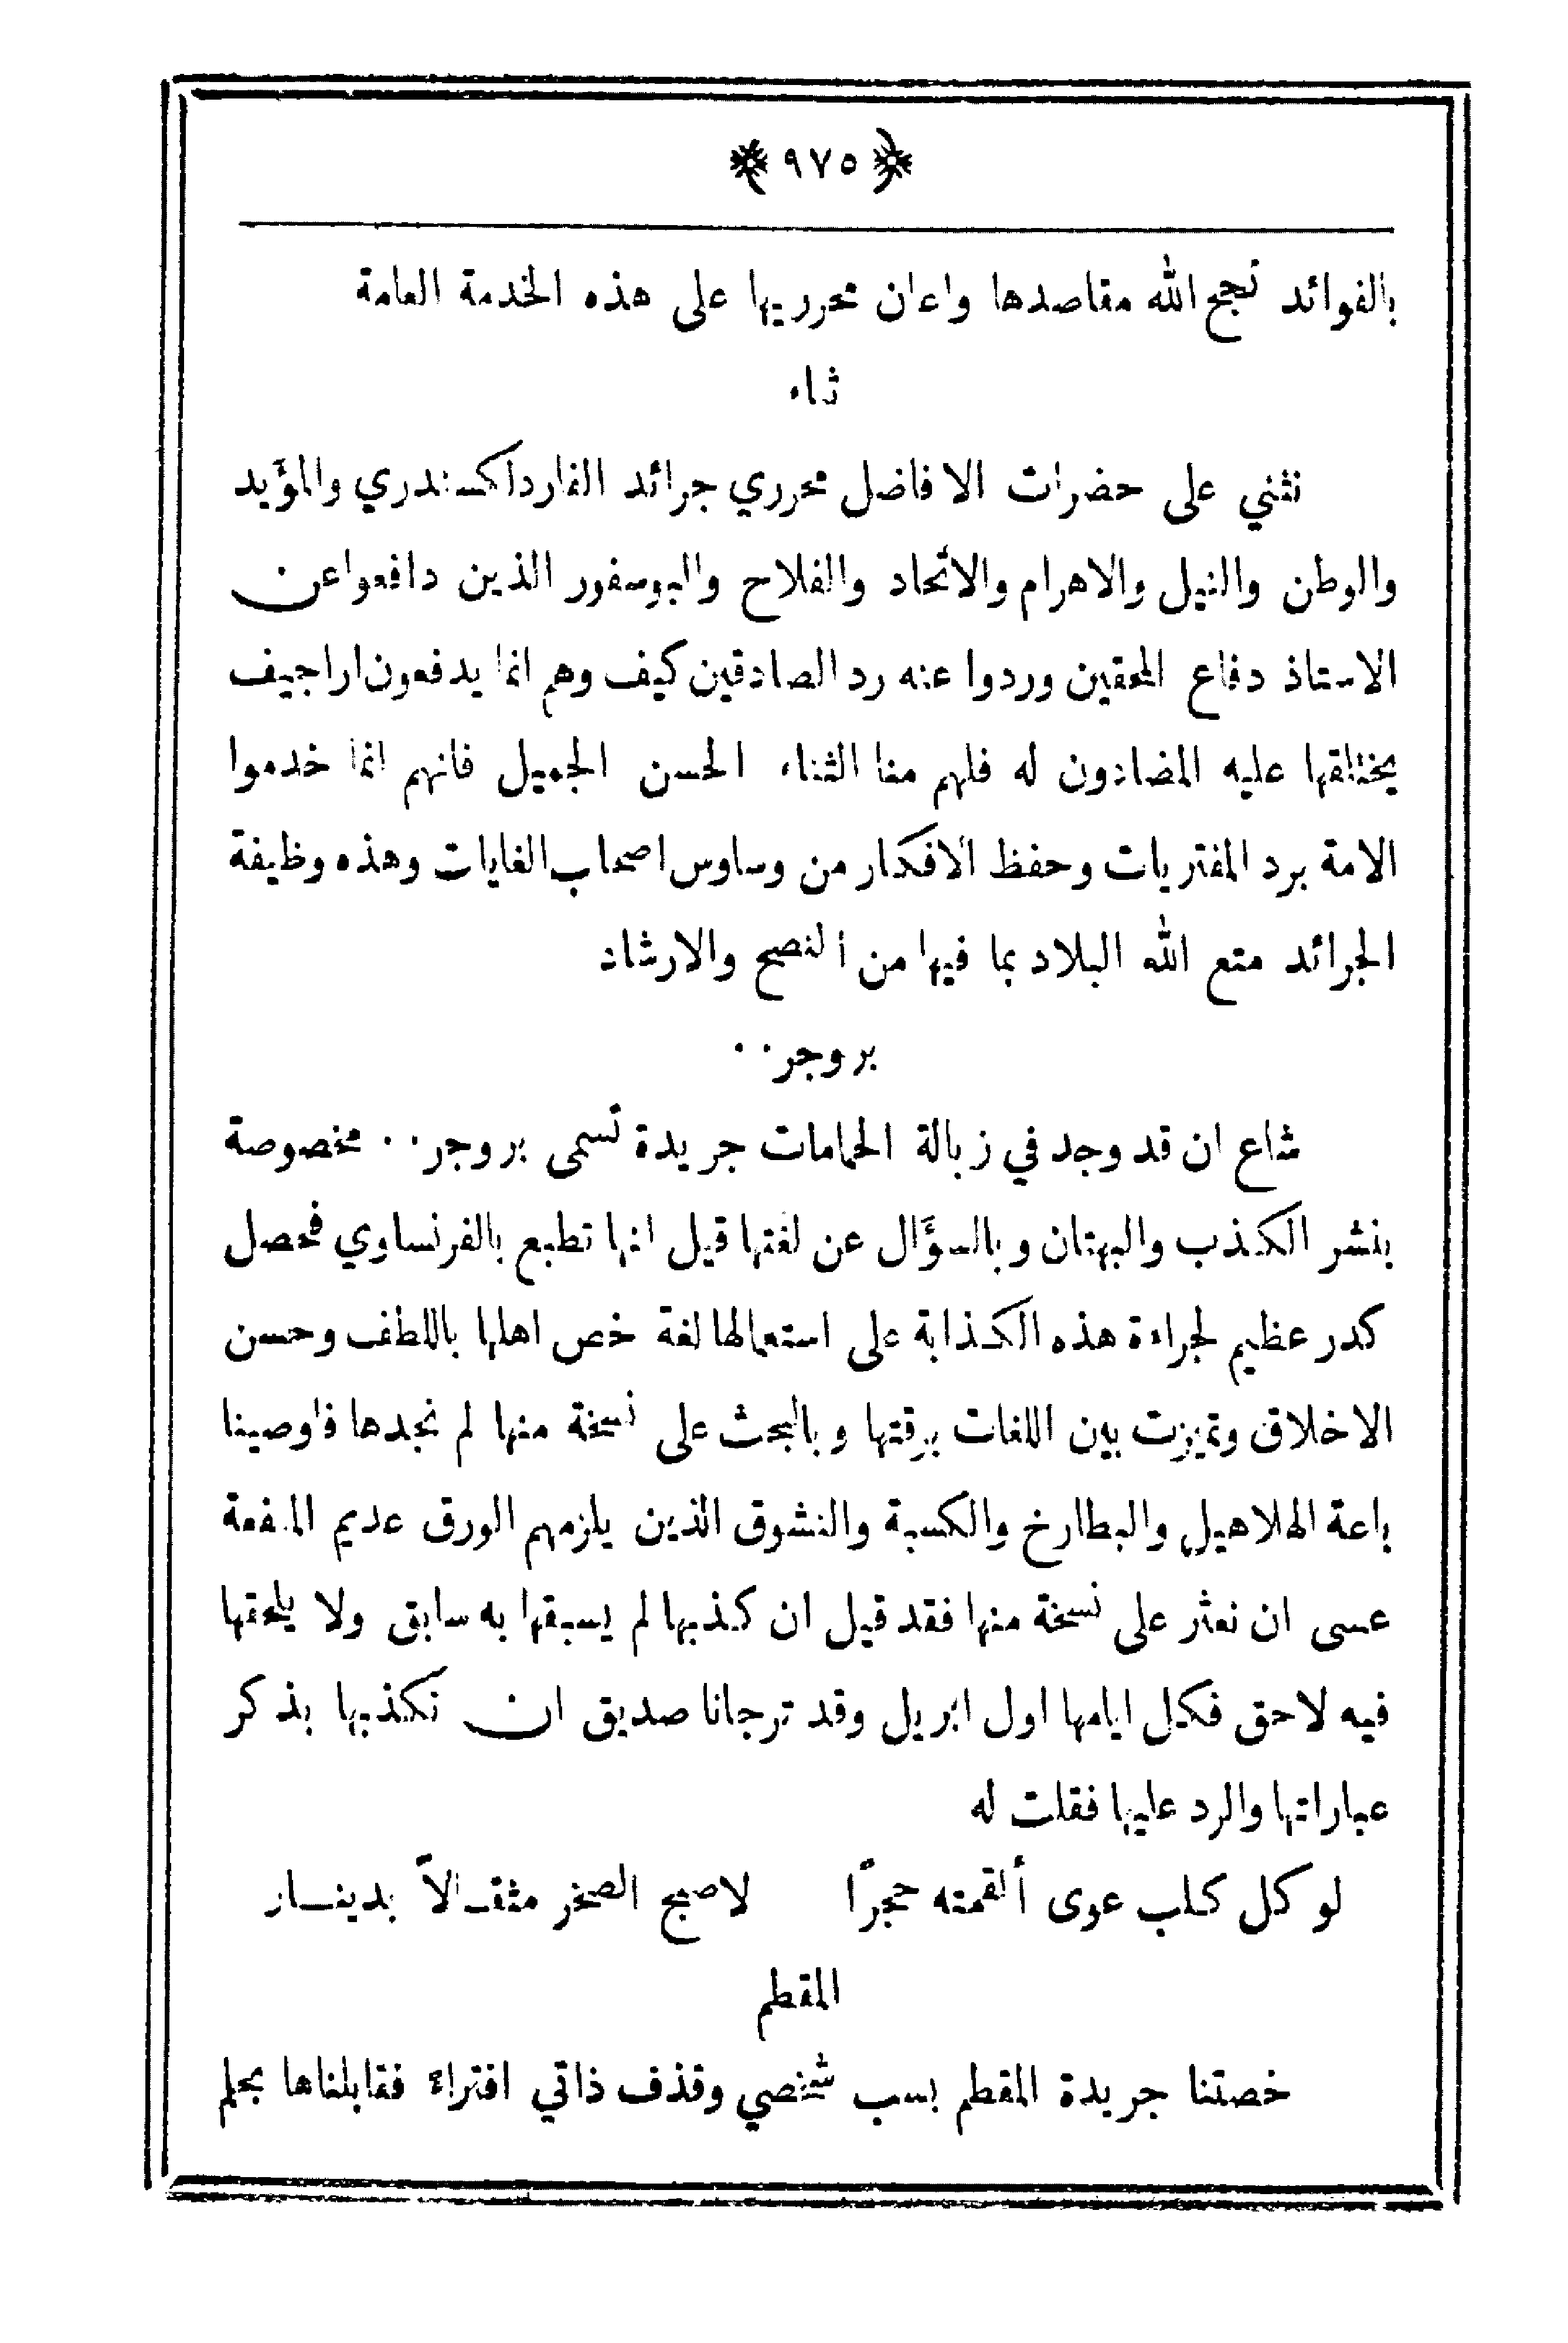 ٩٧٥
بالفوائد نجح الله مقاصدها واعان محرريها على هذه الخدمة العامة
ثناء
نثني على حضرات الافاضل محرري جرائد الفاردالكسندري والمؤَيد
والوطن والنيل والاهرام والاتحاد والفلاح والبوسفور الذين دافعوا عن
الاستاذ دفاع المحقين وردوا عنه رد الصادقين كيف وهم انما يدفعون اراجيف
يختلقها عليه المضادون له فلهم منا الثناء الحسن الجميل فانهم انما خدموا
الامة برد المفتريات وحفظ الافكار من وساوس اصحاب الغايات وهذه وظيفة
الجرائد متع الله البلاد بما فيها من النصح والارشاد
بروجر٠٠
شاع ان قد وجد في زبالة الحمامات جريدة تسمى بروجر٠٠ مخصوصة
بنشر الكذب والبهتان وبالسؤَال عن لغتها قيل انها تطبع بالفرنساوي فحصل
كدر عظيم لجراءة هذه الكذابة على استعمالها لغة خص اهلها باللطف وحسن
الاخلاق وتميزت بين اللغات برقتها وبالبحث على نسخة منها لم نجدها فاوصينا
باعة الهلاهيل والبطارخ والكسبة والنشوق الذين يلزمهم الورق عديم المنفعة
عسى ان نعثر على نسخة منها فقد قيل ان كذبها لم يسبقها به سابق ولا يلحقها
فيه لاحق فكل ايامها اول ابريل وقد ترجانا صديق ان نكذبها بذكر
عباراتها والرد عليها فقلت له
لو كل كلب عوى أَلقمته حجرًا لاصبح الصخر مثقالاً بدينار
المقطم
خصتنا جريدة المقطم بسب شخصي وقذف ذاتي افتراءً فقابلناها بحلم